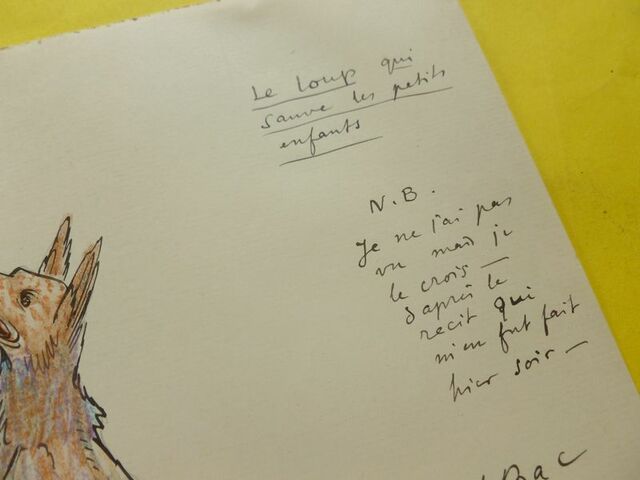 Le loup qui
sauve les petits
enfants
N.B.
Je ne j'ai pas
vu mais je
le crois —
d'après le
récit qui
m'en fut fait
hier soir —